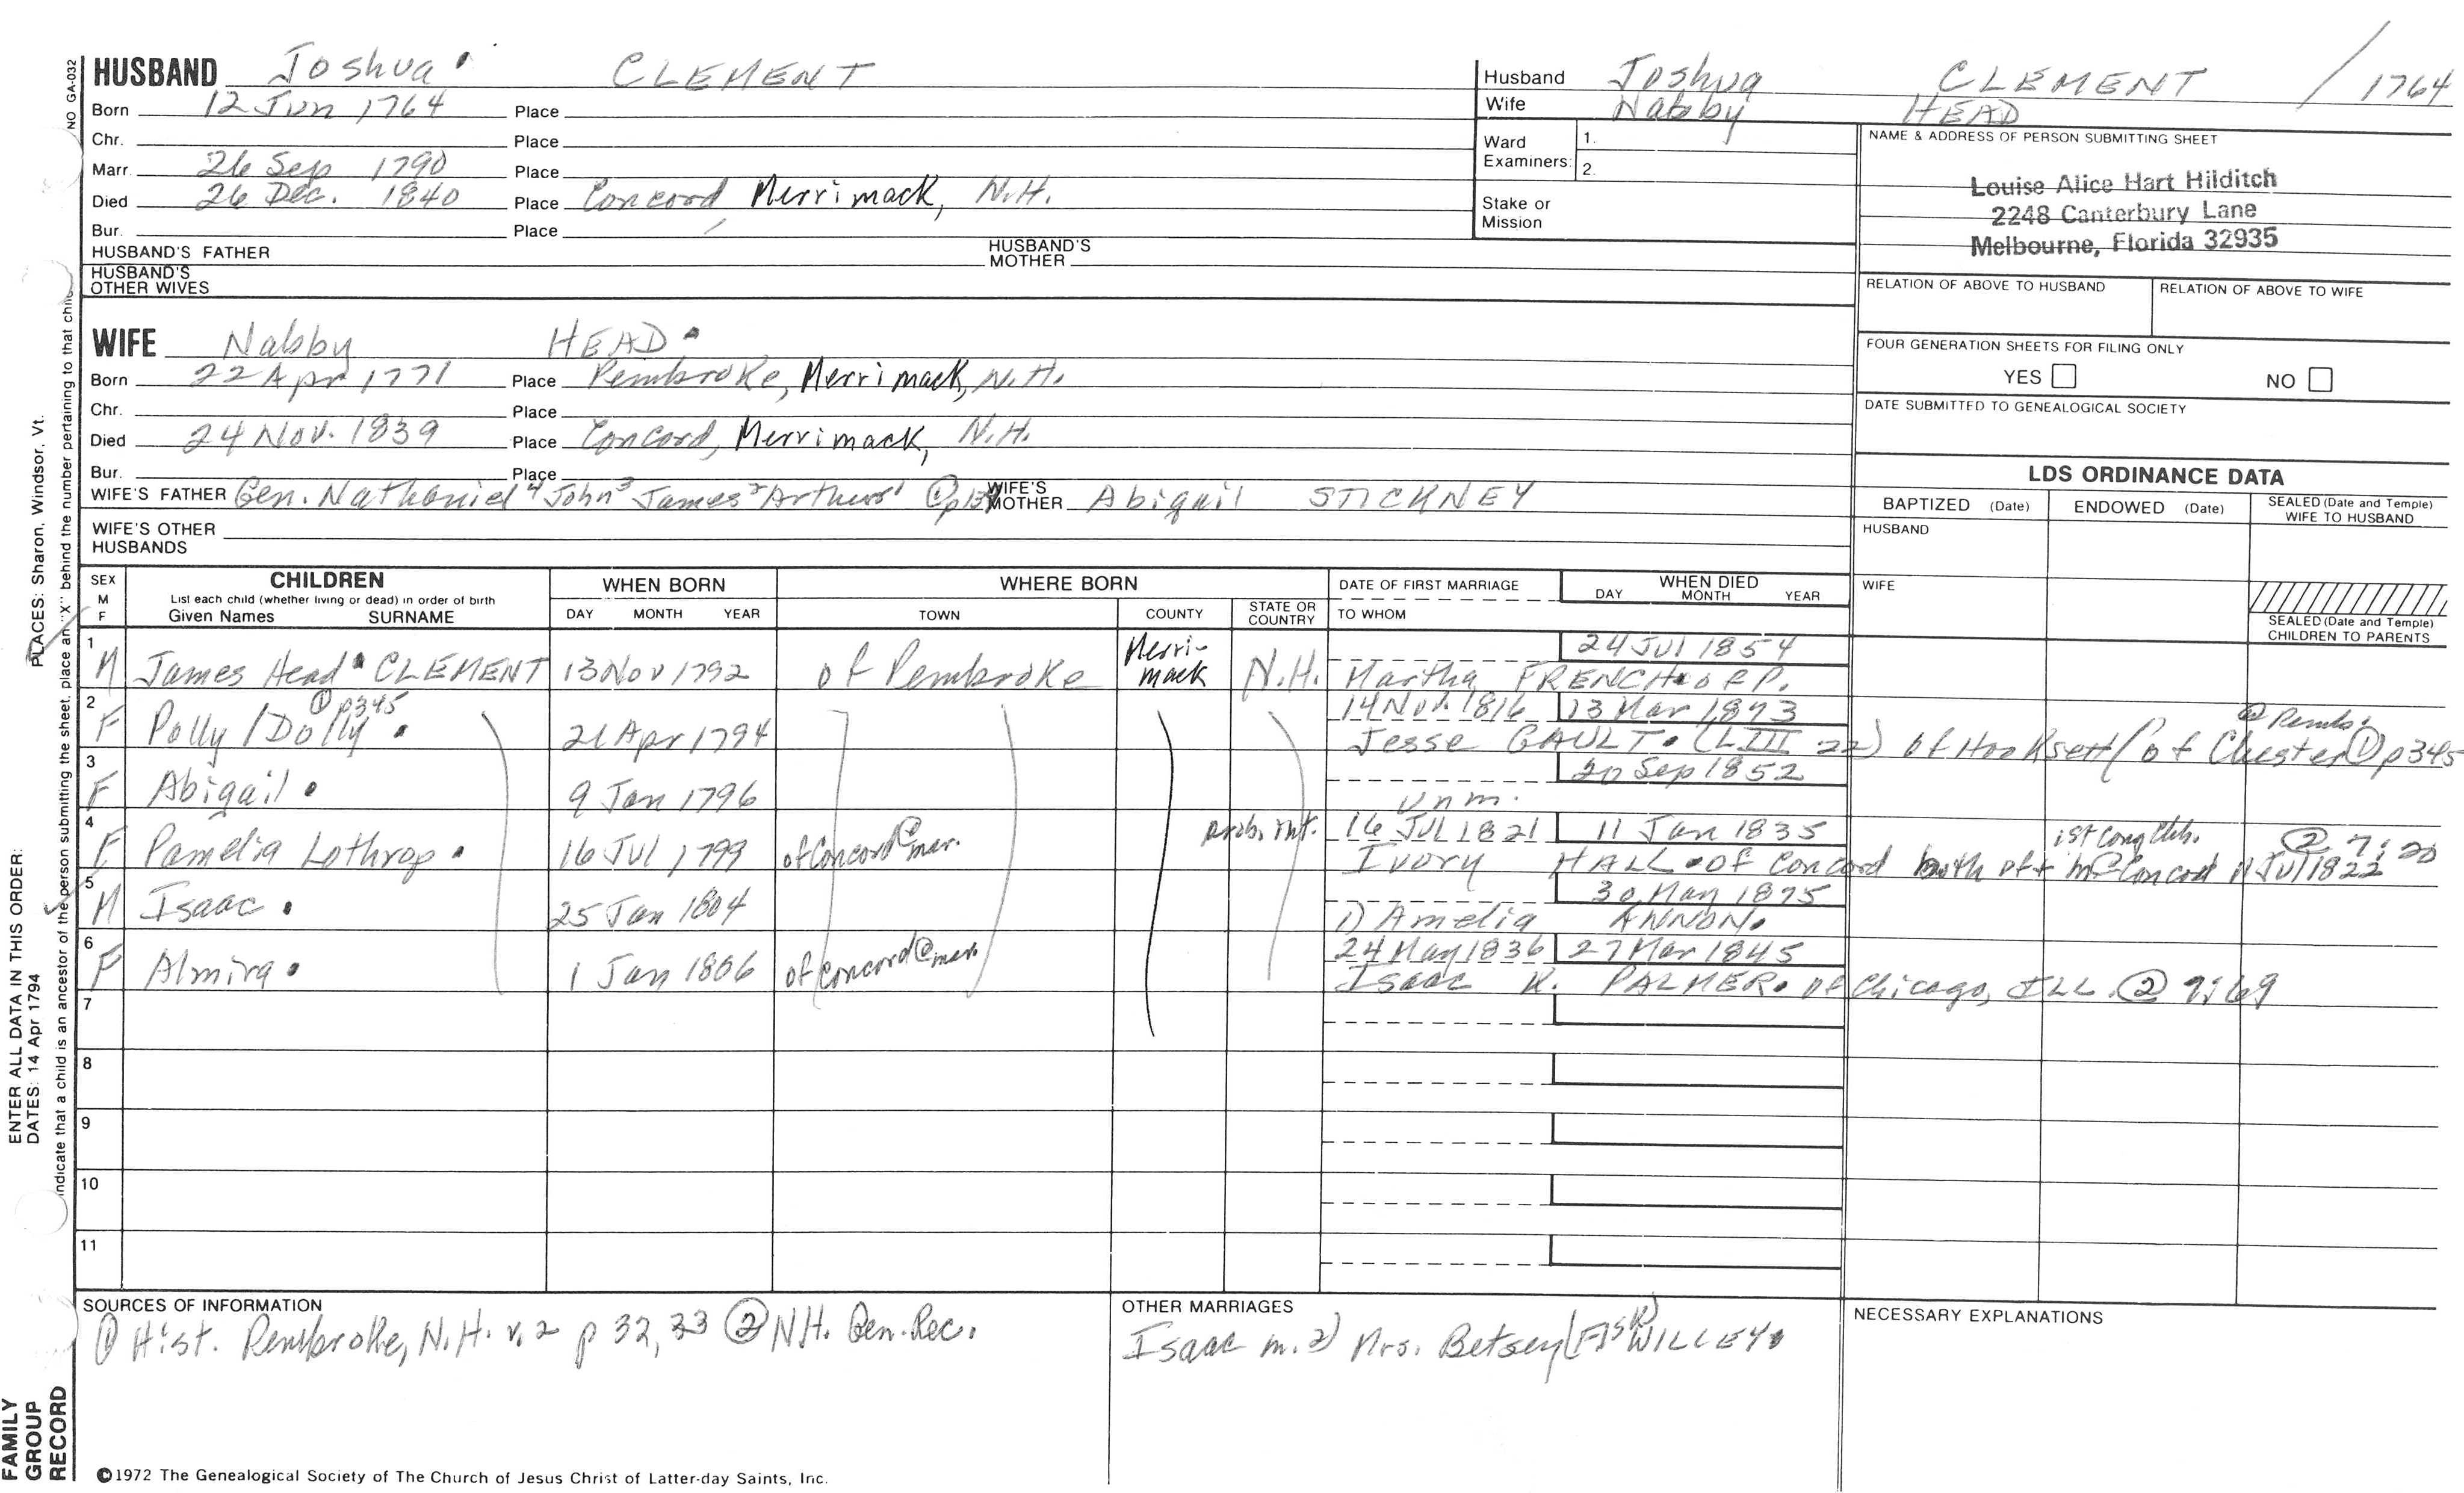 NO GA-032
HUSBAND Joshua CLEMENT
Born 12 Jun 1764 Place
Chr. Place
Marr. 26 Sep 1790 Place
Died 26 Dec. 1840 Place Concord, Merrimack, N.H.
Bur. Place
HUSBAND'S FATHER HUSBAND'S MOTHER
HUSBAND'S OTHER WIVES
Husband Joshua CLEMENT / 1764
Wife Nabby HEAD
Ward Examiners: 1.
2.
Stake or Mission
NAME & ADDRESS OF PERSON SUBMITTING SHEET
Louise Alice Hart Hilditch
2248 Canterbury Lane
Melbourne, Florida 32935
RELATION OF ABOVE TO HUSBAND RELATION OF ABOVE TO WIFE
FOUR GENERATION SHEETS FOR FILING ONLY
YES NO
DATE SUBMITTED TO GENEALOGICAL SOCIETY
WIFE Nabby HEAD
Born 22 Apr 1771 Place Pembroke, Merrimack, N.H.
Chr. Place
Died 24 Nov. 1839 Place Concord, Merrimack, N.H.
Bur. Place
WIFE'S FATHER Gen. Nathaniel⁴ John³ James² Arthur¹ WIFE'S MOTHER Abigail STICKNEY
WIFE'S OTHER HUSBANDS
LDS ORDINANCE DATA
BAPTIZED (Date) ENDOWED (Date) SEALED (Date and Temple) WIFE TO HUSBAND
HUSBAND
WIFE
SEALED (Date and Temple) CHILDREN TO PARENTS
SEX M F CHILDREN List each child (whether living or dead) in order of birth Given Names SURNAME
WHEN BORN DAY MONTH YEAR
WHERE BORN TOWN COUNTY STATE OR COUNTRY
DATE OF FIRST MARRIAGE TO WHOM
WHEN DIED DAY MONTH YEAR
24 Jul 1854
1 M James Head CLEMENT 13 Nov 1792 of Pembroke Merri-mack N.H. Martha FRENCH of P.
① p345 14 Nov. 1816 13 Mar 1873
2 F Polly/Dolly 21 Apr 1794 Jesse GAULT. (LIII 22) of Hooksett/of Chester ① p345
@ Pemb.
20 Sep 1852
3 F Abigail 9 Jan 1796 unm.
prob. int. 16 Jul 1821 11 Jan 1835 1st Cong Ch. ② 7:20
4 F Pamelia Lothrop 16 Jul 1799 of Concord @ mar. Ivory HALL of Concord both of + m @ Concord 11 Jul 1822
30 May 1875
5 M Isaac 25 Jan 1804 1) Amelia ANNON.
24 May 1836 27 Mar 1845
6 F Almira 1 Jan 1806 of Concord @ mar. Isaac K. PALMER. of Chicago, ILL ② 7:69
7
8
9
10
11
SOURCES OF INFORMATION
① Hist. Pembroke, N.H. v.2 p 32,33 ② N.H. Gen. Rec.
OTHER MARRIAGES
Isaac m. 2) Mrs. Betsey (FISK) WILLEY
NECESSARY EXPLANATIONS
©1972 The Genealogical Society of The Church of Jesus Christ of Latter-day Saints, Inc.
FAMILY GROUP RECORD
ENTER ALL DATA IN THIS ORDER:
DATES: 14 Apr 1794
PLACES: Sharon, Windsor, Vt.
indicate that a child is an ancestor of the person submitting the sheet, place an "X" behind the number pertaining to that